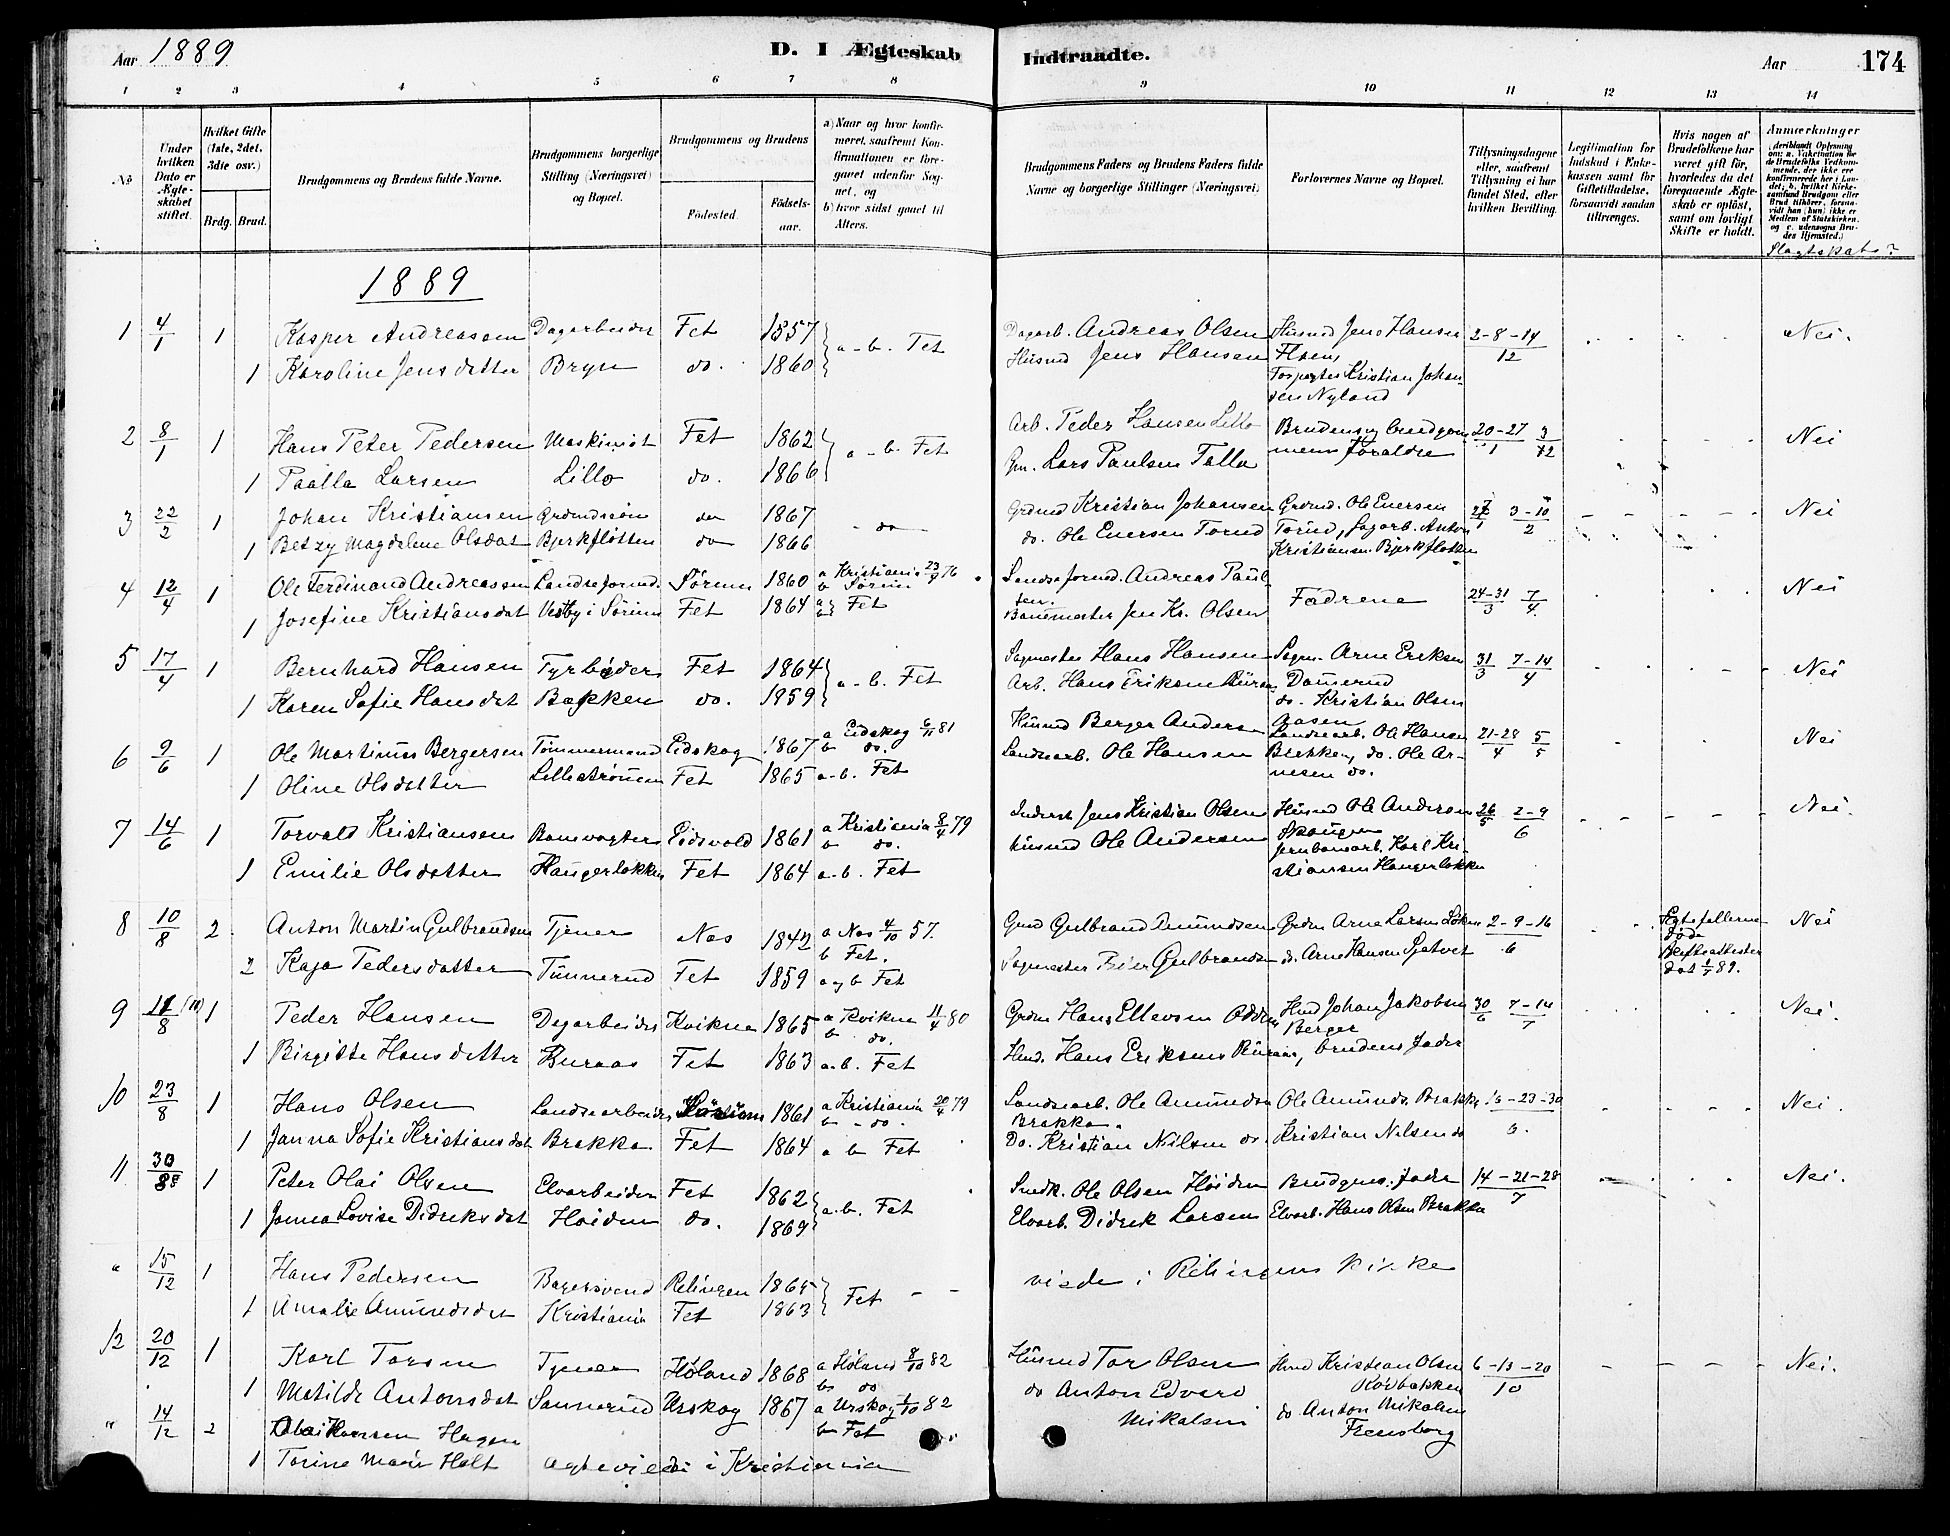 Aar 1889
D. I Ægteskab
Indtraadte.
Aar
174
1 2 3 4 5 6 7 8 9 10 11 12 13 14
No
Under hvilken Dato er Ægteskabet stiftet.
Hvilket Gifte (1ste, 2det, 3die osv.)
Brdg. Brud.
Brudgommens og Brudens fulde Navne.
Brudgommens borgerlige Stilling (Næringsvei) og Bopæl.
Brudgommens og Brudens
Fødested.
Fødselsaar.
a) Naar og hvor konfirmeret, saafremt Konfirmationen er foregaaet udenfor Sognet, og
b) hvor sidst gaaet til Alters.
Brudgommens Faders og Brudens Faders fulde Navne og borgerlige Stillinger (Næringsvei).
Forlovernes Navne og Bopæl.
Tillysningsdagene eller, saafremt Tillysning ei har fundet Sted, efter hvilken Bevilling.
Legitimation for Indskud i Enkekassen samt for Giftetilladelse, forsaavidt saadan tiltrænges.
Hvis nogen af Brudefolkene har været gift før, hvorledes da det foregaaende Ægteskab er opløst, samt om lovligt Skifte er holdt.
Anmærkninger (deriblandt Oplysning om: a. Vakcination for de Brudefolks Vedkommende, der ikke ere konfirmerede her i Landet; b. hvilket Kirkesamfund Brudgom eller Brud tilhører, forsaavidt han (hun) ikke er Medlem af Statskirken, og c. udensogns Brudes Hjemsted.)
Slægtskab?
1889
1 4/1 1 Kasper Andreassen Dagarbeider Fet 1857 a-b. Fet Dagarb. Andreas Olsen Husmd Jens Hansen 2-8-14/12 Nei.
1 Karoline Jensdatter Bryn do. 1860 Husmd Jens Hansen
Kristian Johansen Nyland
2 8/1 1 Hans Peter Pedersen Maskinist Fet 1862 a-b. Fet Arb. Peder Hansen Lillo Brudens og brudgommens forældre 20-27/1 3/12 Nei
1 Paalla Larsen Lillo do. 1866 Gm. Lars Paulsen Falla
3 22/2 1 Johan Kristiansen Grdmdssøn do 1867 do Grdmd Kristian Johansen Grdmd. Ole Enersen 3-10/2 Nei
1 Betzy Magdalene Olsdat Bjerkfløtten do 1866 do. Ole Enersen Torud Torud, Sagarb. Anton
Kristiansen Bjerkfløtten
4 12/4 1 Ole Ferdinand Andreassen Sørum 1860 a Kristiania 23/9 76 b Sørum Andreas Paulsen Fædrene 24-31/3 7/4 Nei
1 Josefine Kristiansdat Vestby i Sørum Fet 1864 a b Fet Banemester Jen Kr. Olsen
5 17/4 1 Bernhard Hansen Fyrbøder Fet 1864 a-b. Fet Sagmester Hans Hansen Sagm. Arne Eriksen 31/3 7-14/4 Nei
1 Karen Sofie Hansdat Bakken do. 1859 Arb. Hans Eriksen
do. Kristian Olsen Aasen
6 9/6 1 Ole Martinus Bergersen Tømmermand Eidskog 1867 a Eidskog 6/11 81 b do. Husmd Berger Anders Landsearb. Ole Hansen 21-28/4 5/5 Nei
1 Oline Olsdatter Lillestrømmen Fet 1865 a-b. Fet Landsearb. Ole Hansen Brekken, do. Ole Arnesen do.
7 14/6 1 Torvald Kristiansen Banevogter Eidsvold 1861 a Kristiania 8/4 79 b do. Inderst Jens Kristian Olsen Husmd Ole Andersen 26/5 2-9/6 Nei.
1 Emilie Olsdatter Haugerløkken Fet 1864 a-b. Fet Husmd Ole Andersen Skougen
Jernbanearb. Karl Kristiansen Haugerløkka
8 10/8 2. Anton Martin Gulbrandsen Tjener Næs 1842 a Næs 4/10 57. b Fet. Gmd Gulbrand Amundsen Grdm Arne Larsen Løken 2-9-16/6 Egtefællerne døde Nei
2 Kaja Pedersdatter Tunnerud Fet 1859 a og b Fet Sagmester Gulbrands do. Arne Hansen Skifteattester dat 1/7 89.
9 11/8 (10) 1 Peder Hansen Dagarbeider Kvikne 1865 a Kvikne 11/4 80 b do. Grdm Hans Ellevsen Husmd Johan Jakobsen Berger 30/6 7-14/7 Nei.
1 Birgitte Hansdatter Buraas Fet 1863 a-b. Fet Husmd. Hans Eriksen brudens fader
10 23/8 1 Hans Olsen Landsearbeider 1861 a Kristiania 20/4 79 b do. Landsearb. Ole Amundsen Brakka. Ole Amunds. Brakka 16-23-30/6. Nei.
1 Janna Sofie Kristiansdat Brakka Fet 1864 a b Fet Do. Kristian Nilsen do. Kristian Nilsen do
11 30/8 1 Peter Olai Olsen Elvarbeider Fet 1862 a.b. Fet Smdk. Ole Olsen Høiden Brudgms. fader 14-21-28/7 Nei.
1 Janna Lovise Didriksdat Høiden do. 1869 Elvarb. Didrik Larsen Elvarb. Hans Olsen Brakka
" 15/12 1 Hans Pedersen Bagersvend Relingen 1865 Fet viede i Relingens Kirke
1 Amalie Amundsdat Kristiania Fet 1863
12 20/12 1 Karl Torsen Tjener Høland 1868 a Høland 8/10 82 b do Husmd Tor Olsen Husmd Kristian Olsen Rødbakken 6-13-20/10 Nei.
1 Matilde Antonsdat Sannerud Urskog 1867 a Urskog 1/10 82 b Fet do Anton Edvard Mikalsen do Anton Mikalsen
" 14/12 2 Olai Hansen Hagen
1 Torine Marie Holt Ægteviede i Kristiania